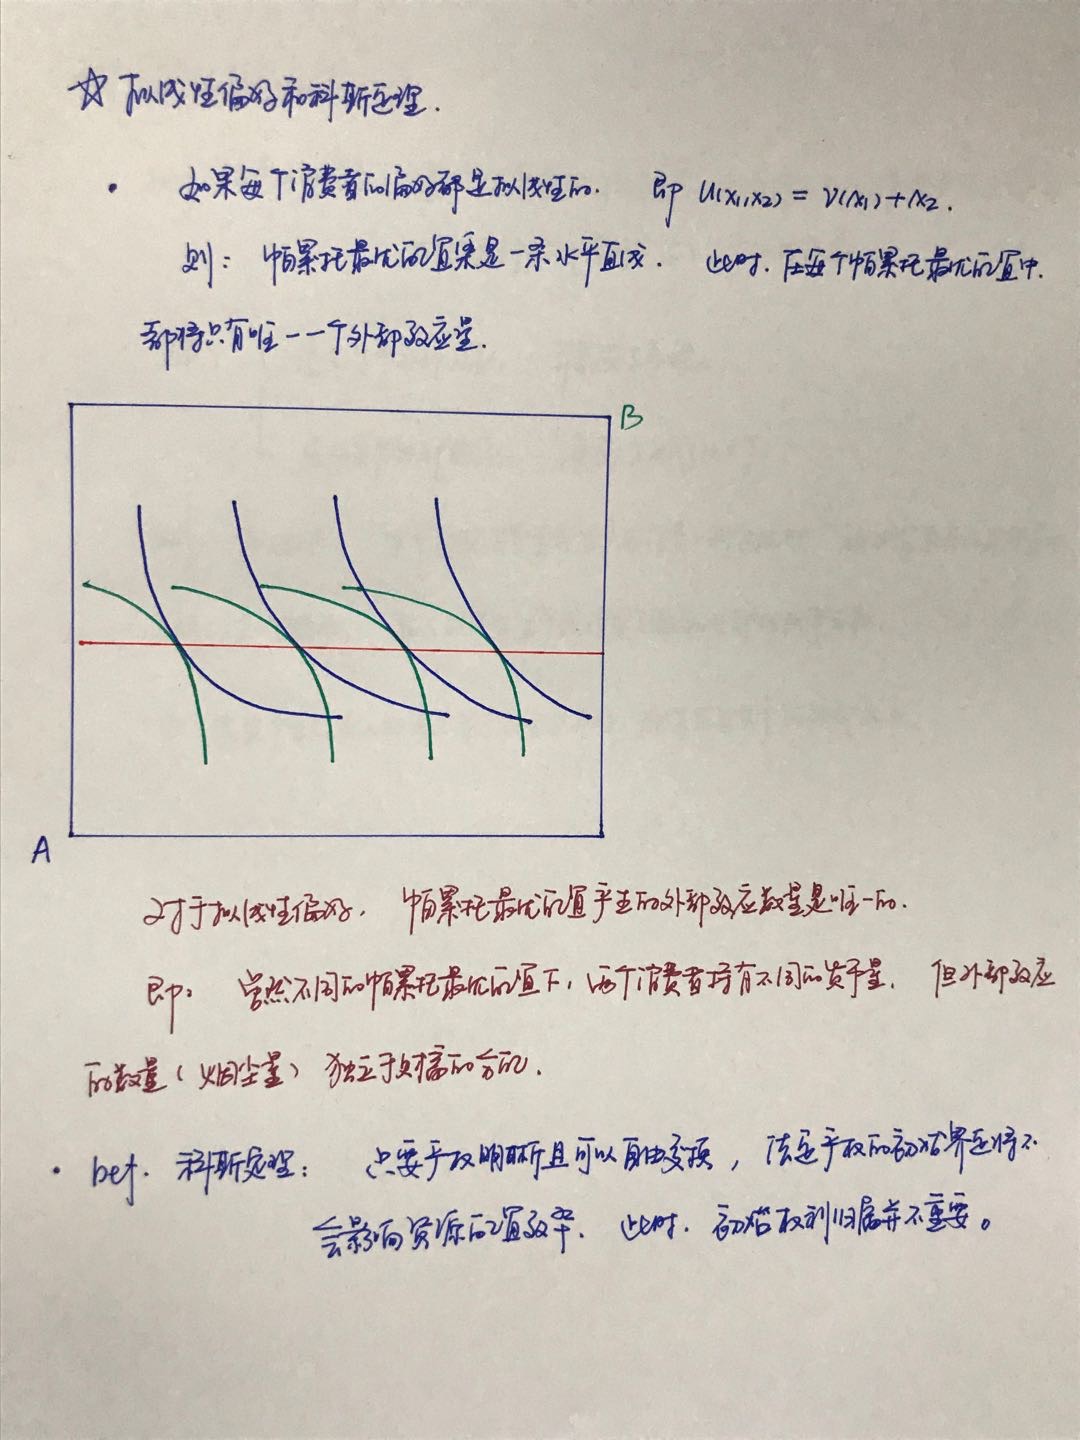 ☆ 拟线性偏好和科斯定理.
· 如果每个消费者的偏好都是拟线性的. 即 U(x1,x2) = V(x1)+x2.
则: 帕累托最优配置集是一条水平直线. 此时. 在每个帕累托最优配置中.
都将只有唯一一个外部效应量.
B
A
对于拟线性偏好. 帕累托最优配置产生的外部效应数量是唯一的.
即: 虽然不同的帕累托最优配置下, 两个消费者持有不同的货币量. 但外部效应
的数量(烟尘量) 独立于财富的分配.
· def. 科斯定理: 只要产权明晰且可以自由交换, 法定产权的初始界定将不
会影响资源配置效率. 此时. 初始权利归属并不重要。